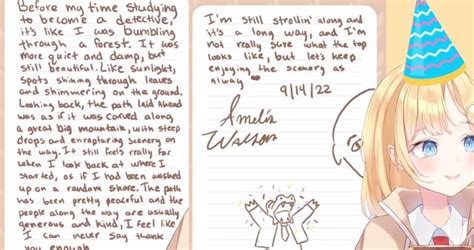 Before my time studying
to become a detective,
it's like I was bumbling
through a forest. It was
more quiet and damp, but
still beautiful. Like sunlight,
spots shining through leaves
and shimmering on the ground.
Looking back, the path laid ahead
was as if it was carved along
a great big mountain, with steep
drops and enrapturing scenery on
the way. It still feels really far
when I look back at where I
started, as if I had been washed
up on a random shore. The path
has been pretty peaceful and the
people along the way are usually
generous and kind, I feel like
I can never say thank
you enough.
I'm still strollin' along and
it's a long way, and I'm
not really sure what the top
looks like, but lets keep
enjoying the scenery as
alway ♥
9/14/22
Amelia
Watson